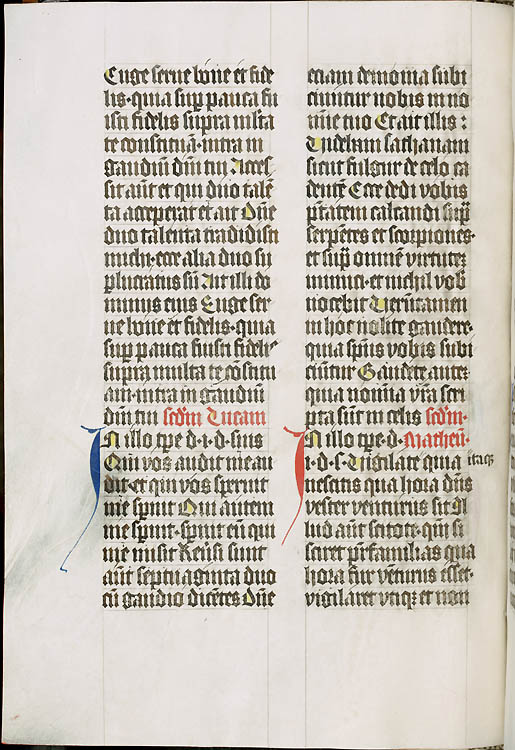 Euge serue bone et fide
lis·quia sup̄ pauca fu
isti fidelis supra ml̄ta
te constituā·intra in
gaudiū dn̄i tui Acces
sit aūt et qui duo talē
ta acceperat et ait Dn̄e
duo talenta tradidisti
michi·ecce alia duo su
plucratus sū Ait illi do
minus eius Euge ser
ue bone et fidelis·quia
sup̄ pauca fuisti fidelis
supra multa te constitu
am·intra in gaudiū
dn̄i tui scdm̄ Lucam
In illo tp̄e d·i·d·suis
Qui vos audit me au
dit·et qui vos spernit
me spernit Qui autem
me spernit·spernit eū qui
me misit Reūsi sunt
aūt septuaginta duo
cū gaudio dicētes Dn̄e
etiam demonia subi
ciuntur nobis in no
mīe tuo Et ait illis :
Uidebam sathanam
sicut fulgur de celo ca
dentē Ecce dedi vobis
ptātem calcandi sup̄
serpētes et scorpiones·
et sup̄ omnē virtutez
inimici·et nichil vob̄
nocebit Uerūtamen
in hoc nolite gaudere·
quia sp̄us vobis subi
ciūtur Gaudete autez
quia nomīa vr̄a scri
pta sūt in celis scdm̄·
In illo tp̄e d· Matheū·
i·d·s· Uigilate quia itaqz
nescitis qua hora dn̄s
vester venturus sit Il
lud aūt scitote·qm̄ si
sciret pr̄familias qua
hora fur venturus esset·
vigilaret vtiqz et non